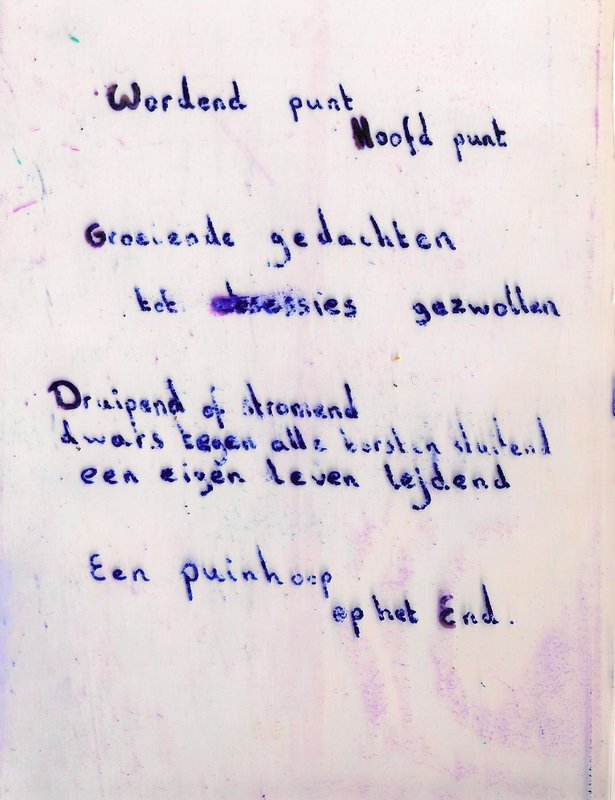 Wordend punt
Hoofd punt
Groeiende gedachten
tot obsessies gezwollen
Druipend of stromend
dwars tegen alle korsten stuitend
een eigen leven lejdend
Een puinhoop
op het End.